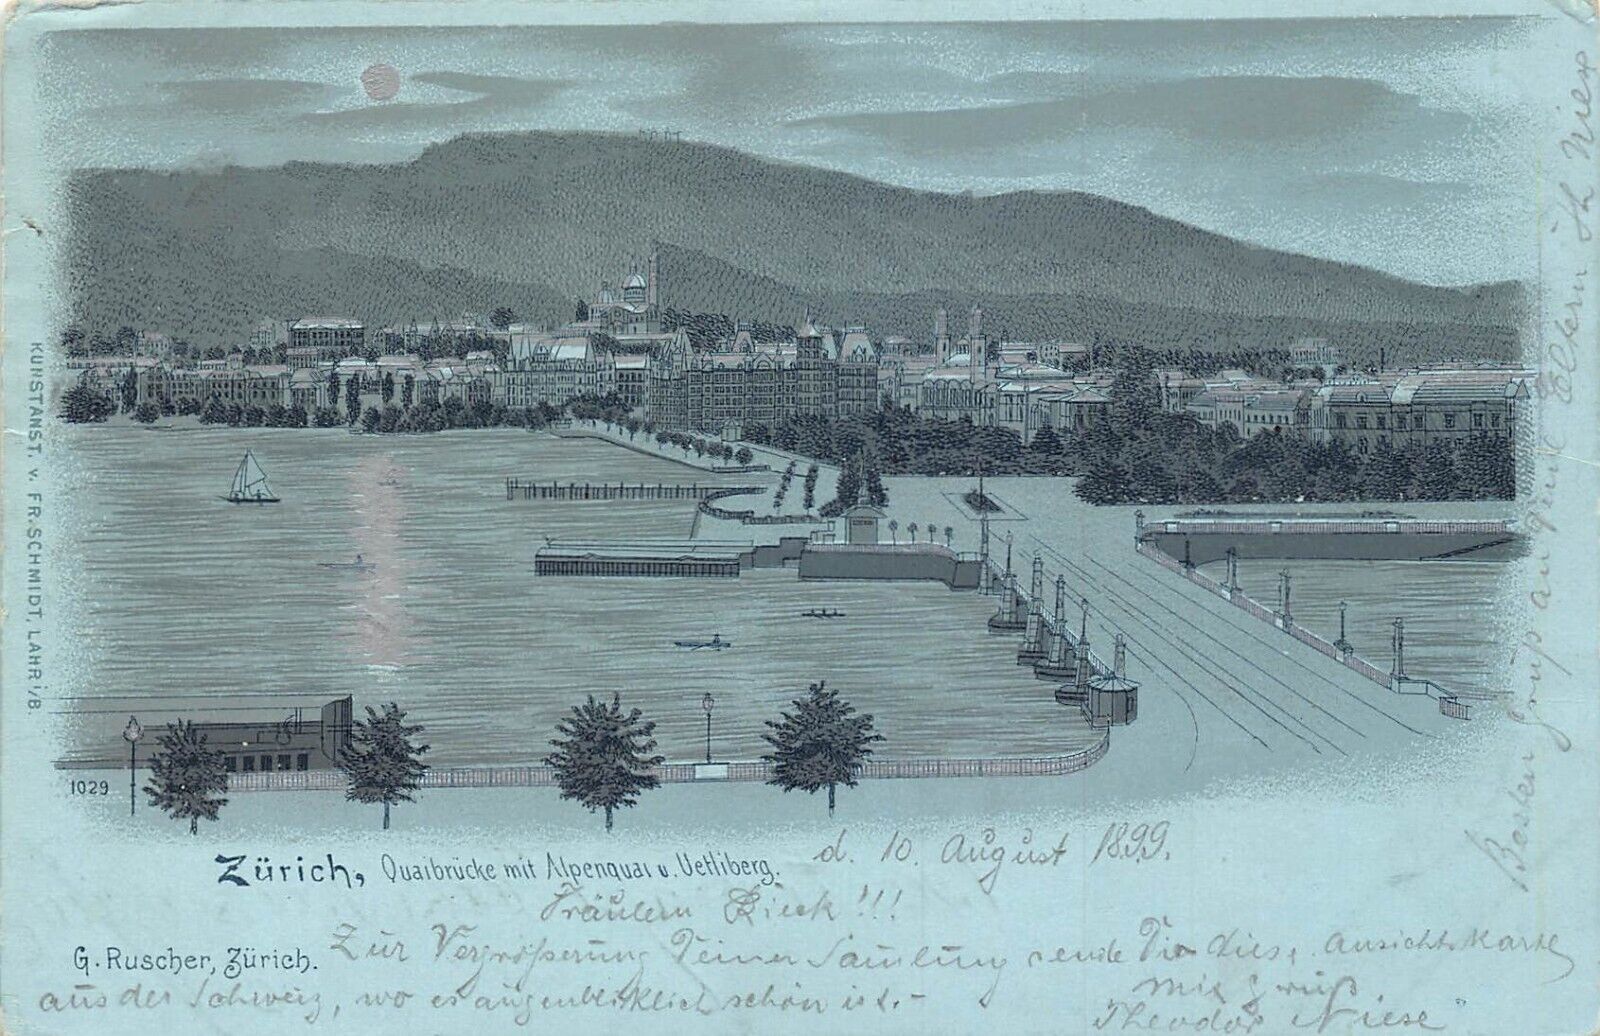 KUNSTANST. v. FR. SCHMIDT, LAHR i/B.
1029
Zürich, Quaibrücke mit Alpenquai u. Uetliberg.
d. 10 August 1899.
Fräulein Rieck!!!
G. Ruscher, Zürich.
Zur Vergrößerung Deiner Samlung sende Dir diese Ansichtskarte
aus der Schweiz, wo es augenblicklich schön ist.-
Mit Gruß,
Theodor Niese"
Besten Gruß an Eltern Th Niese